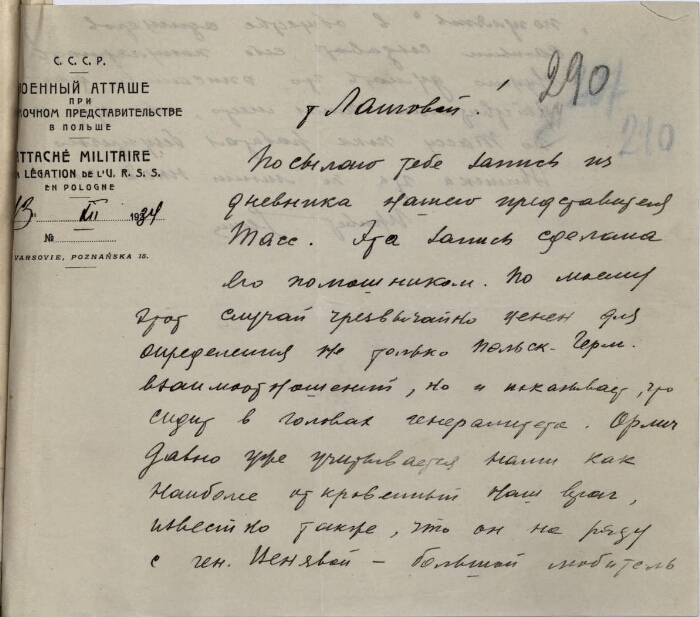 С.С.С.Р.
ВОЕННЫЙ АТТАШЕ
ПРИ
МОЧНОМ ПРЕДСТАВИТЕЛЬСТВЕ
В ПОЛЬШЕ
ATTACHÉ MILITAIRE
A LÉGATION DE L'U.R.S.S.
EN POLOGNE
13 III 1934
№
VARSOVIE, POZNAŃSKA 15.
290
210
т Лаговой!
Посылаю тебе запись из
дневника нашего представителя
Тасс. Эта запись сделана
его помошником. По моему
этот случай чрезвычайно ценен для
определения не только Польск-Герм.
взаимоотношений, но и показывает, что
сидит в головах генералитета. Орлич
давно уже учитывается нами как
наиболе откровенный наш враг,
известно также, что он на ряду
с ген. Венявой – большой любитель